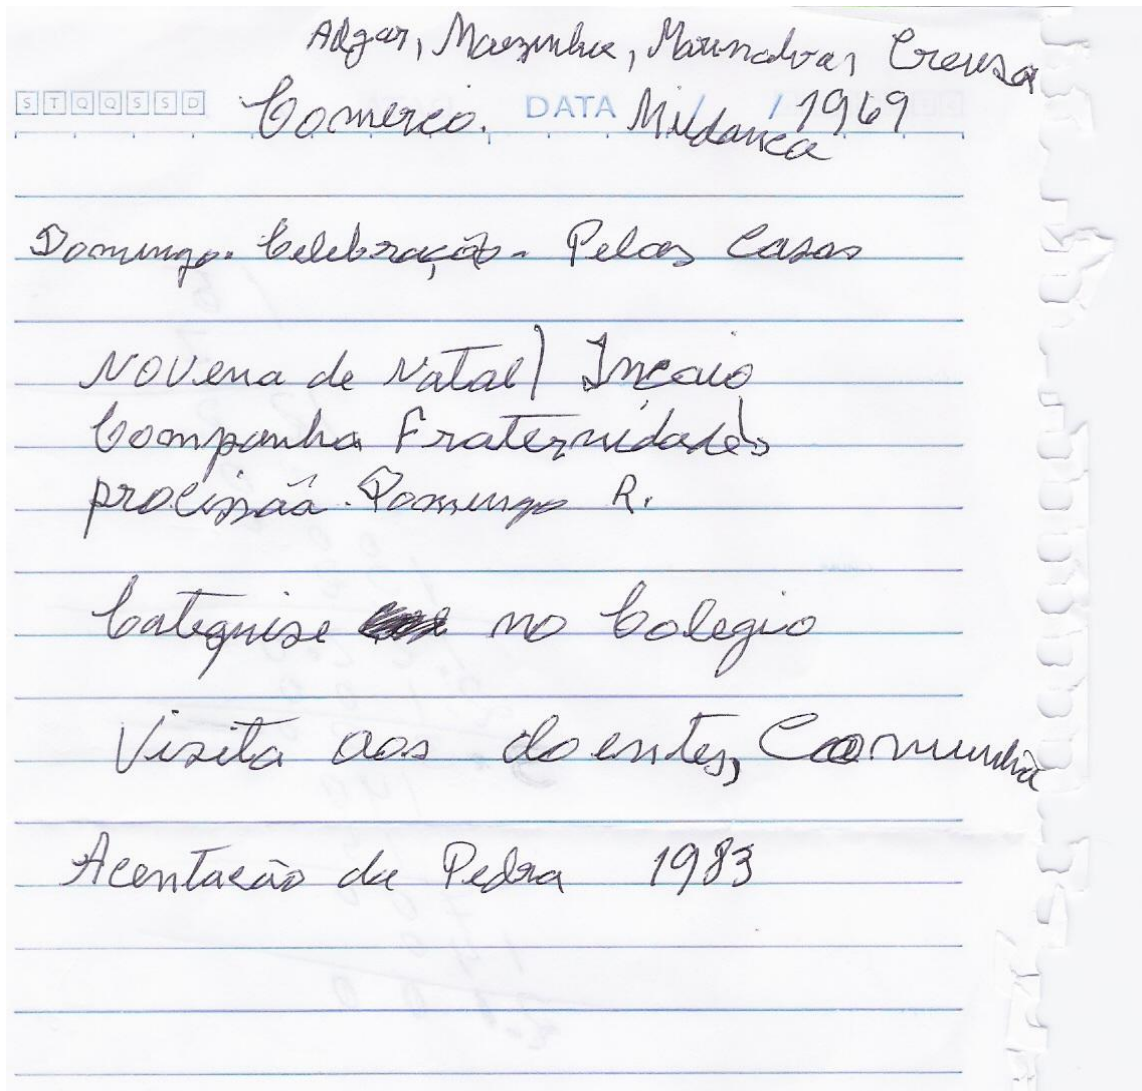 Adgar, Maezinha, Marinalva, Creusa
STQQSSD Comercio. DATA / / 1969
Mudanca
Domingo. Celebração. Pelas Casas
Novena de Natal)
Companha Fraternidade
procissãa. Domingo R.
Catequise no Colegio
Visita aos doentes, Comunhã
Acentacão da Pedra 1983